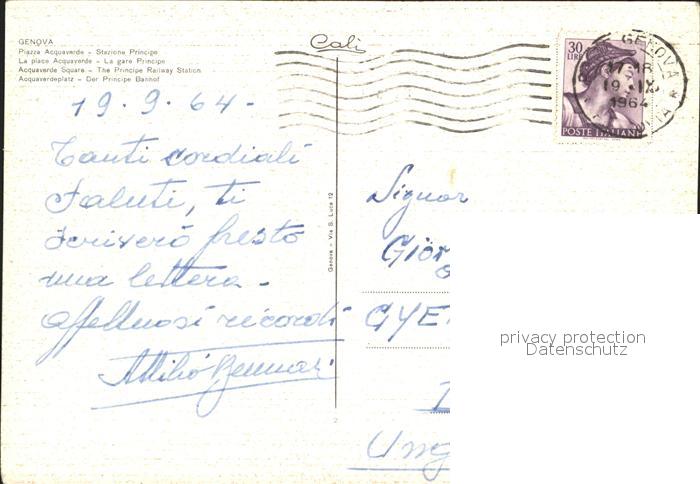 GENOVA
Piazza Acquaverde - Stazione Principe
La place Acquaverde - La gare Principe
Acquaverde Square - The Principe Railway Station
Acquaverdeplatz - Der Principe Banhof
Calì
30
LIRE
POSTE ITALIANE
GENOVA
17-18
19.IX
1964
19.9.64-
Tanti cordiali
saluti, ti
scriverò presto
una lettera -
affettuosi ricordi
Attilio
Genova - Via S. Luca 12
2
Signor
Giör
GYE
Ung
privacy protection
Datenschutz